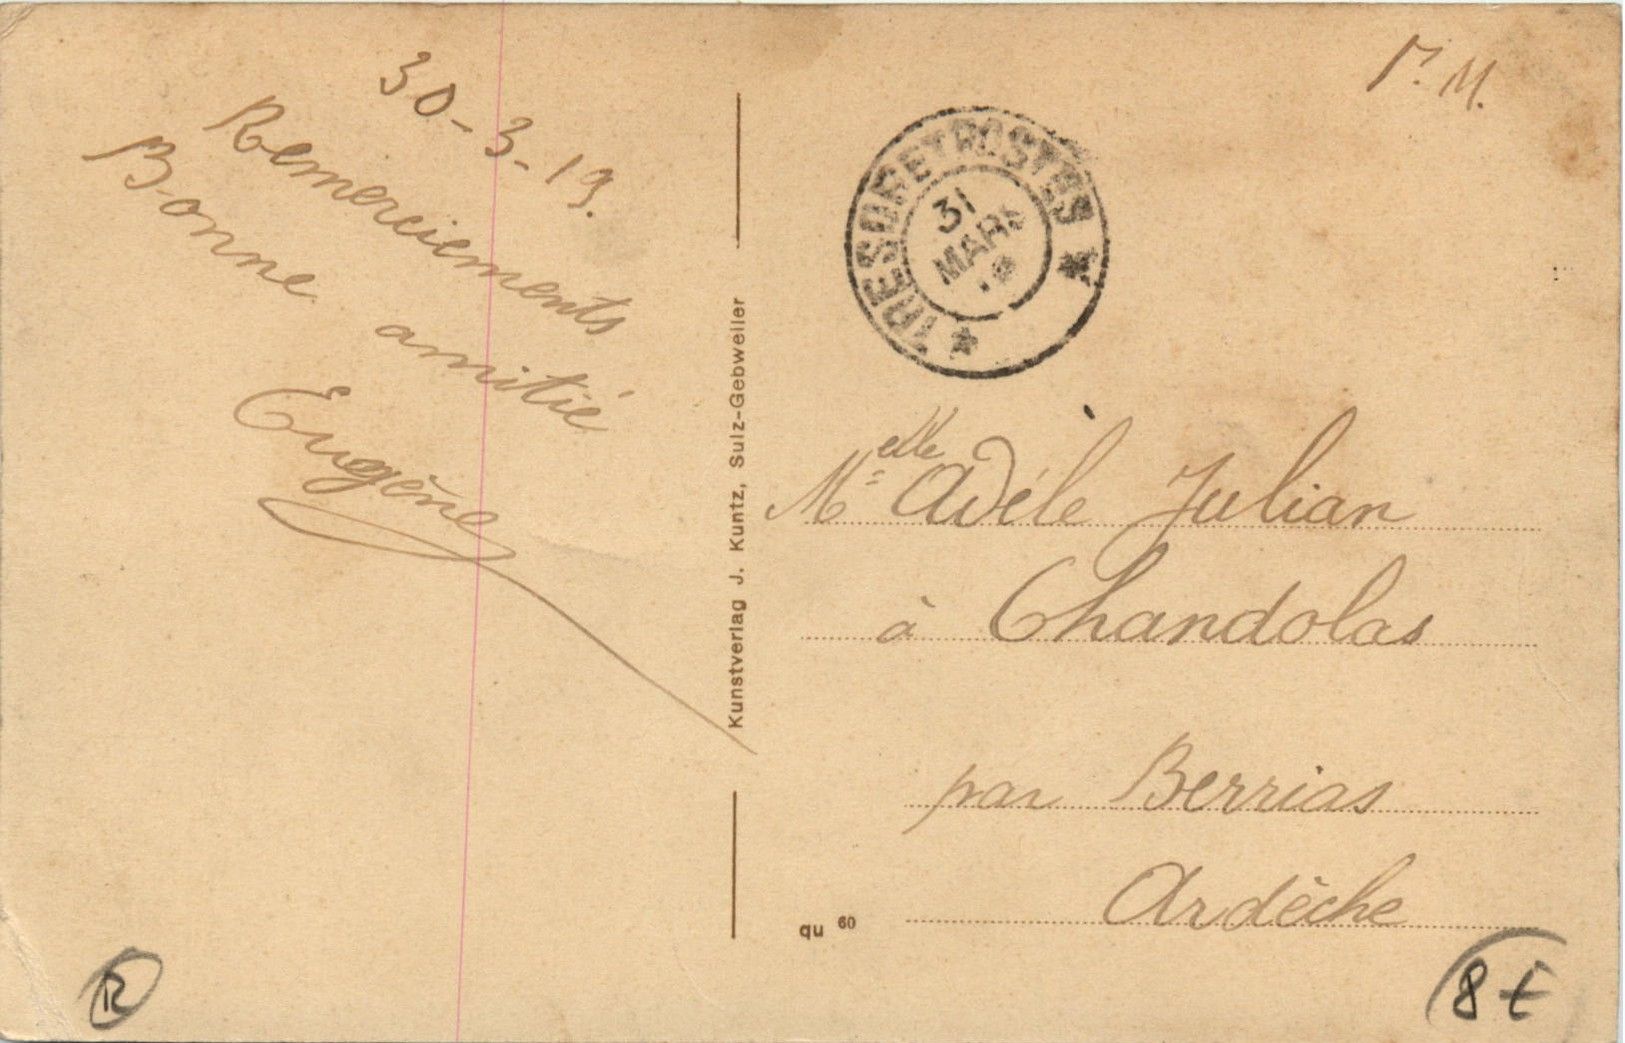 30-3-19.
Remerciements
Bonne amitié
Eugène
Kunstverlag J. Kuntz, Sulz-Gebweiler
F. M.
* TRESOR ET POSTES *
31
MARS
19
Melle Adèle Julian
à Chandolas
par Berrias
Ardèche
qu 60
R
8 €